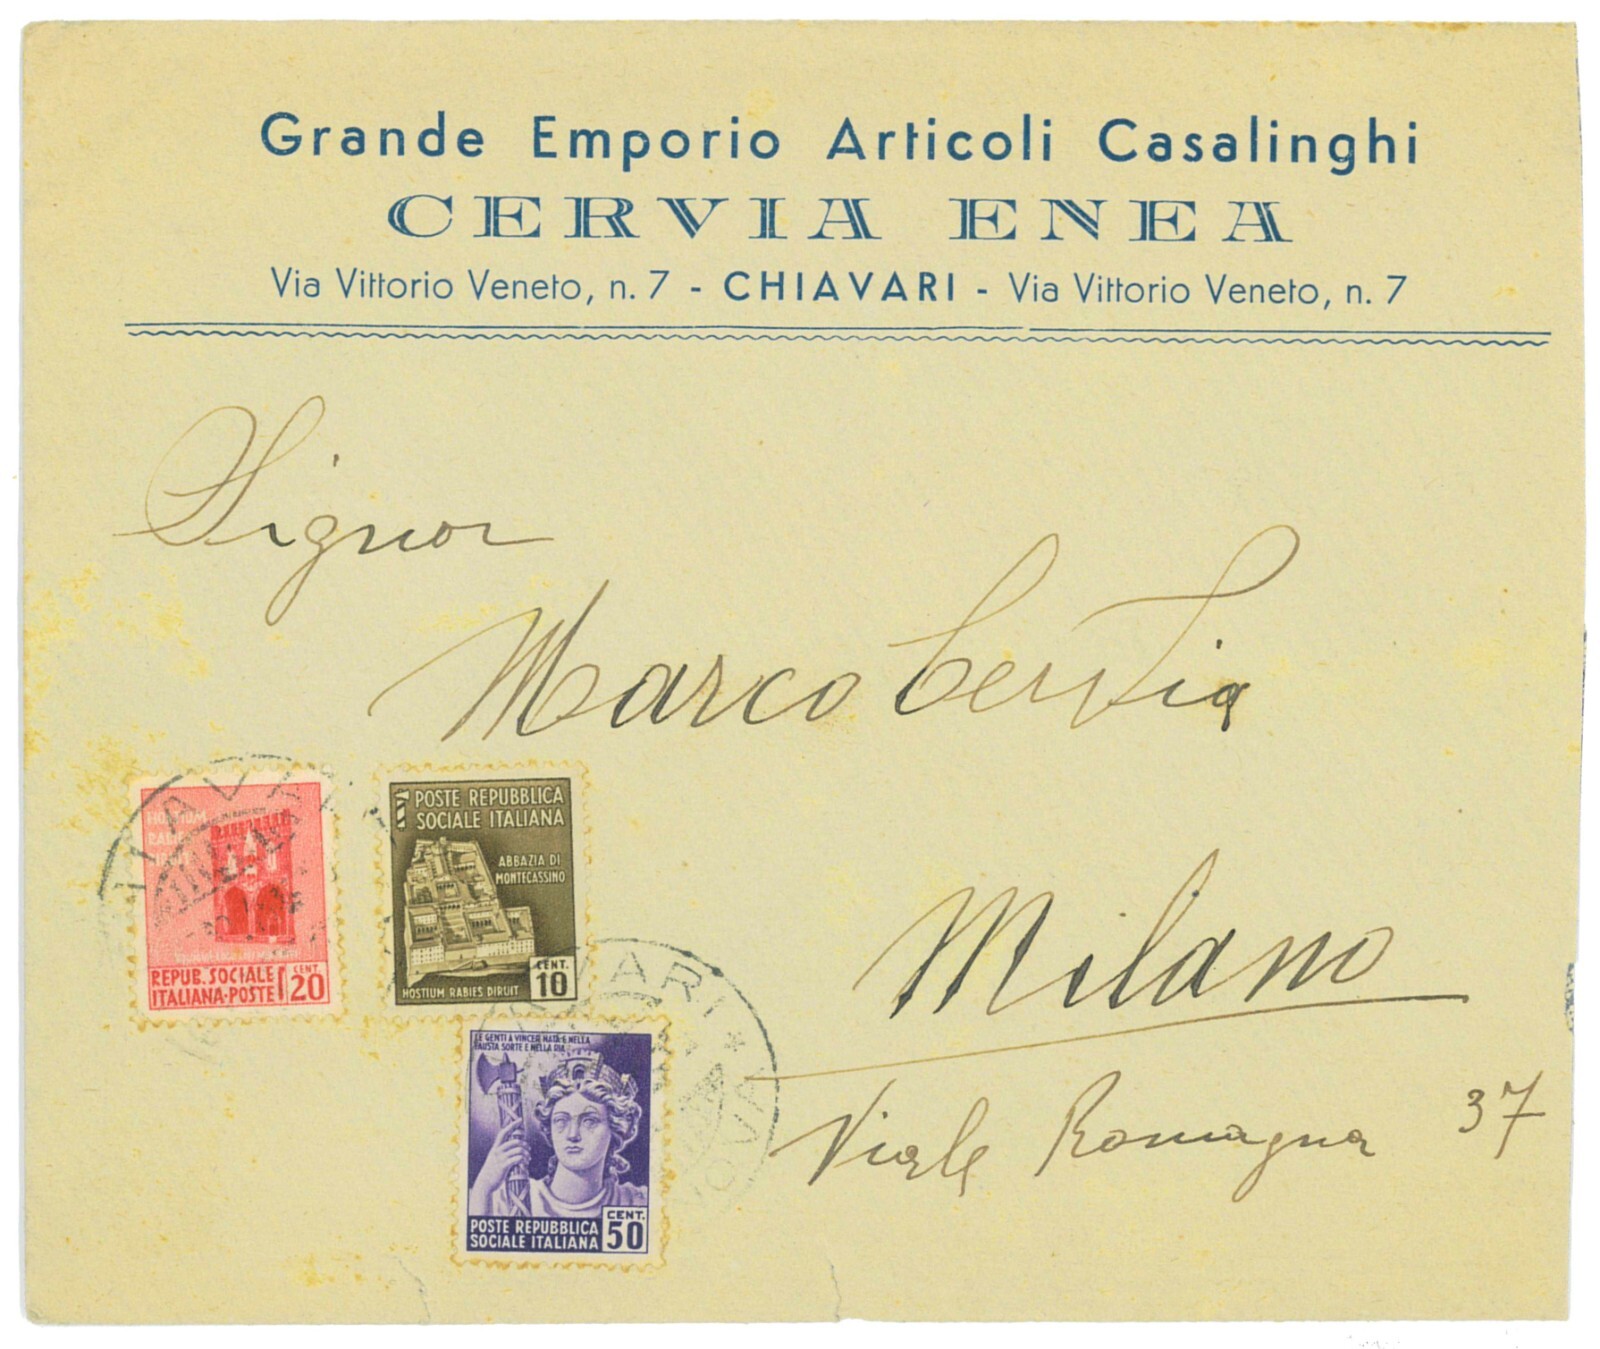 Grande Emporio Articoli Casalinghi
CERVIA ENEA
Via Vittorio Veneto, n. 7 - CHIAVARI - Via Vittorio Veneto, n. 7
Signor
Marco Cervia
Milano
Viale Romagna 37
HOSTIUM
RABIES
DIRUIT
REPUB. SOCIALE
ITALIANA·POSTE
CENT
20
POSTE REPUBBLICA
SOCIALE ITALIANA
ABBAZIA DI
MONTECASSINO
CENT.
10
HOSTIUM RABIES DIRUIT
LE GENTI A VINCER NATA E NELLA
FAUSTA SORTE E NELLA RIA
POSTE REPUBBLICA
SOCIALE ITALIANA
CENT.
50